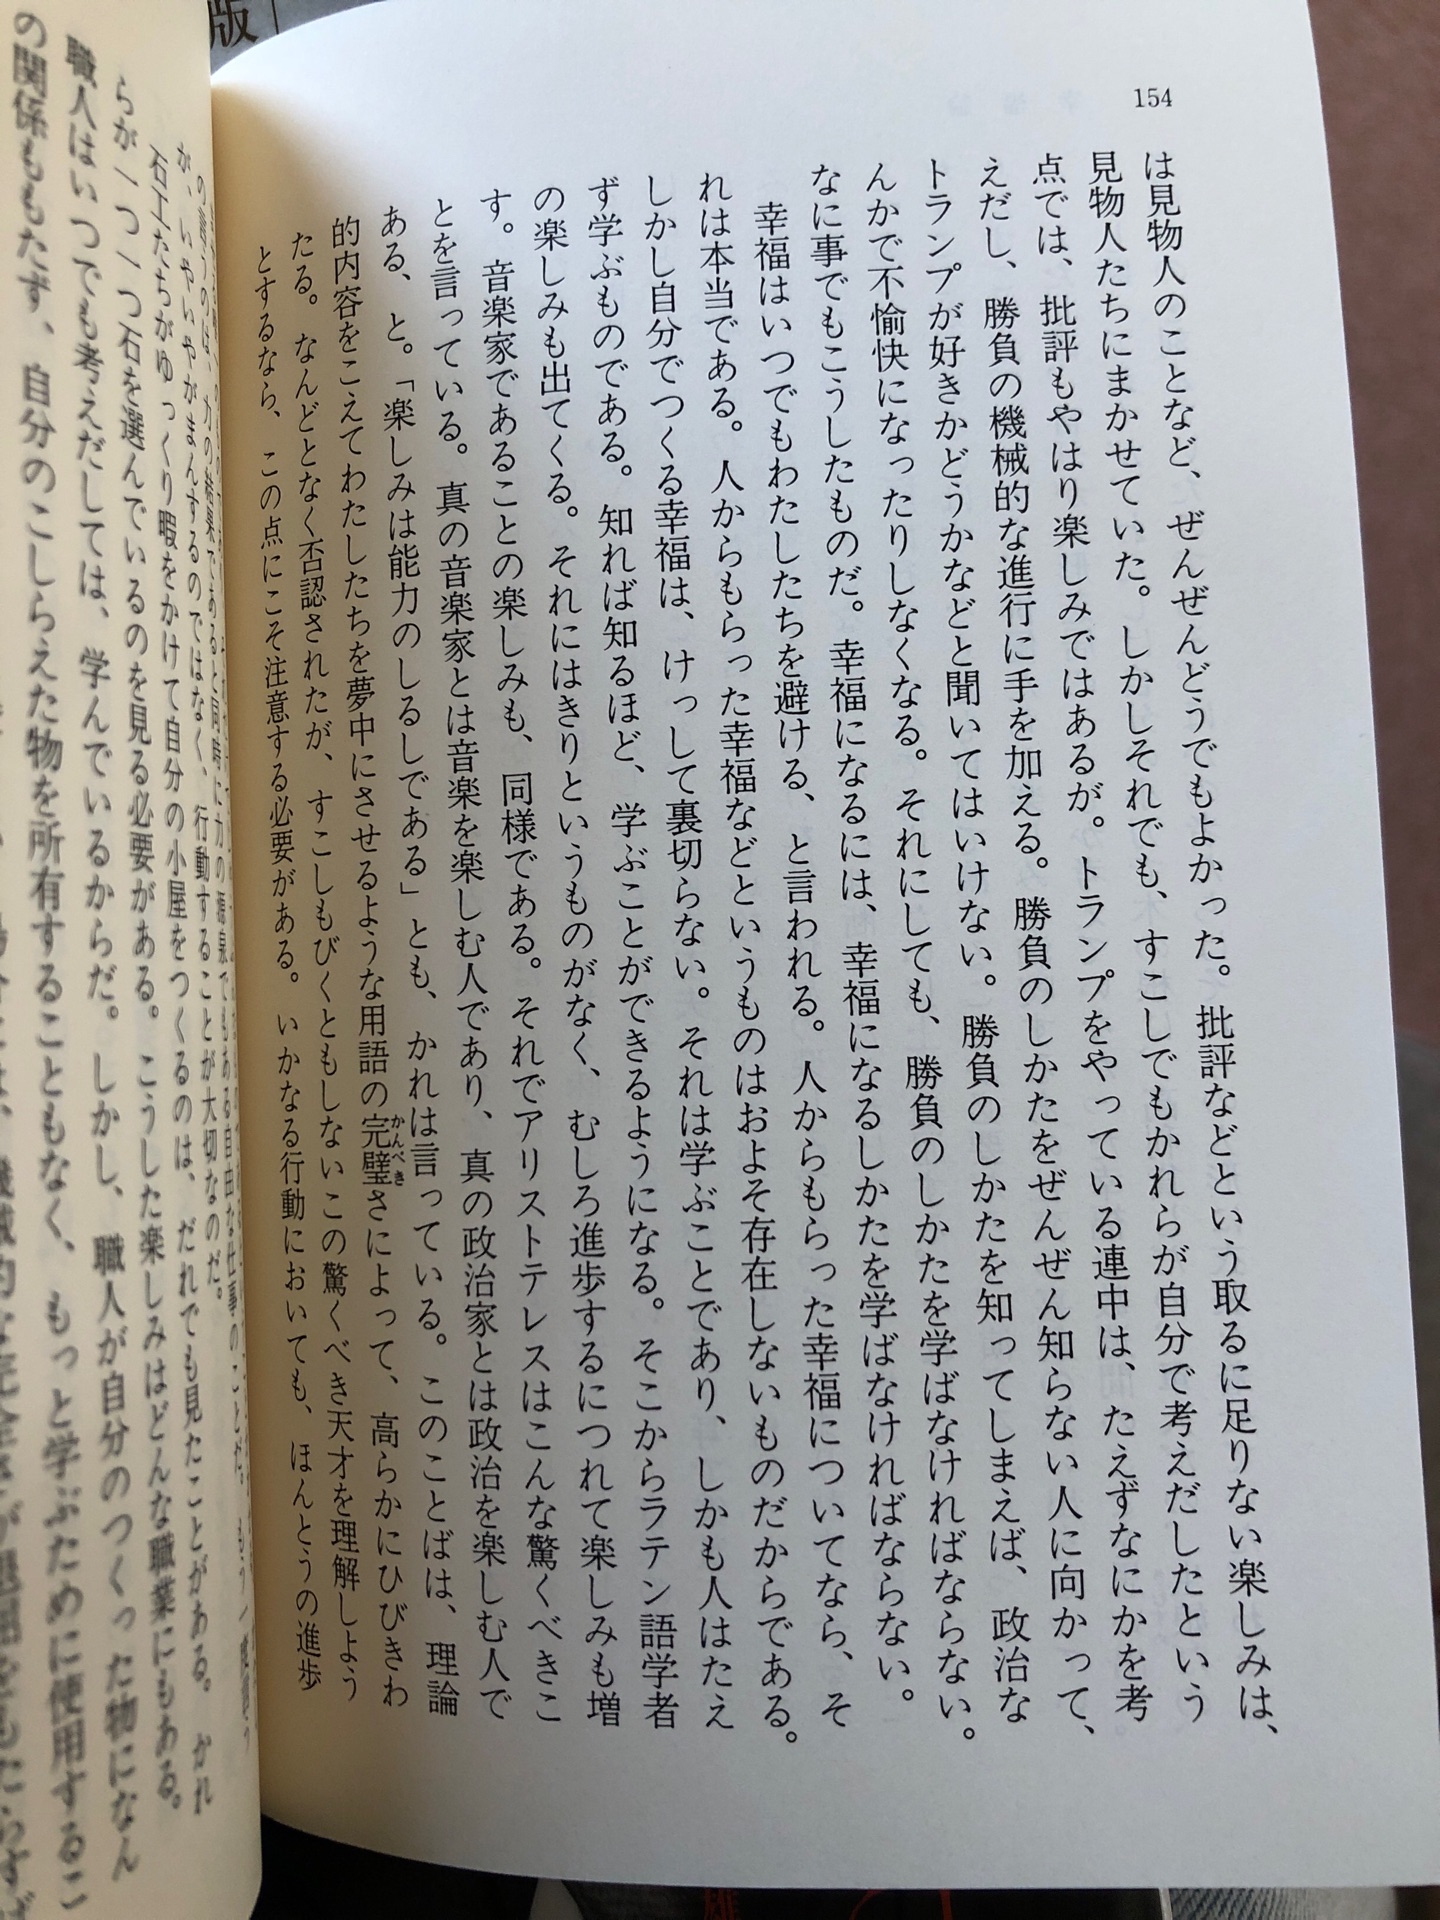 版
154
は見物人のことなど、ぜんぜんどうでもよかった。批評などという取るに足りない楽しみは、
見物人たちにまかせていた。しかしそれでも、すこしでもかれらが自分で考えだしたという
点では、批評もやはり楽しみではあるが。トランプをやっている連中は、たえずなにかを考
えだし、勝負の機械的な進行に手を加える。勝負のしかたをぜんぜん知らない人に向かって、
トランプが好きかどうかなどと聞いてはいけない。勝負のしかたを知ってしまえば、政治な
んかで不愉快になったりしなくなる。それにしても、勝負のしかたを学ばなければならない。
なに事でもこうしたものだ。幸福になるには、幸福になるしかたを学ばなければならない。
幸福はいつでもわたしたちを避ける、と言われる。人からもらった幸福についてなら、そ
れは本当である。人からもらった幸福などというものはおよそ存在しないものだからである。
しかし自分でつくる幸福は、けっして裏切らない。それは学ぶことであり、しかも人はたえ
ず学ぶものである。知れば知るほど、学ぶことができるようになる。そこからラテン語学者
の楽しみも出てくる。それにはきりというものがなく、むしろ進歩するにつれて楽しみも増
す。音楽家であることの楽しみも、同様である。それでアリストテレスはこんな驚くべきこ
とを言っている。真の音楽家とは音楽を楽しむ人であり、真の政治家とは政治を楽しむ人で
ある、と。「楽しみは能力のしるしである」とも、かれは言っている。このことばは、理論
的内容をこえてわたしたちを夢中にさせるような用語の完璧かんぺきさによって、高らかにひびきわ
たる。なんどとなく否認されたが、すこしもびくともしないこの驚くべき天才を理解しよう
とするなら、この点にこそ注意する必要がある。いかなる行動においても、ほんとうの進歩
の言うのは、力の結果であると同時に力の源泉でもある自由な仕事のことだ。もう一度言う
が、いやいやがまんするのではなく、行動することが大切なのだ。
石工たちがゆっくり暇をかけて自分の小屋をつくるのは、だれでも見たことがある。かれ
らが一つ一つ石を選んでいるのを見る必要がある。こうした楽しみはどんな職業にもある。
職人はいつでも考えだしては、学んでいるからだ。しかし、職人が自分のつくった物になん
の関係ももたず、自分のこしらえた物を所有することもなく、もっと学ぶために使用するこ